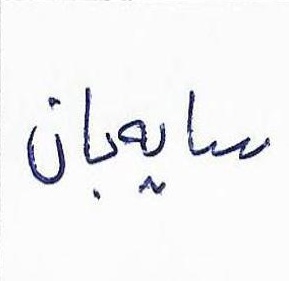 سایه‌بان